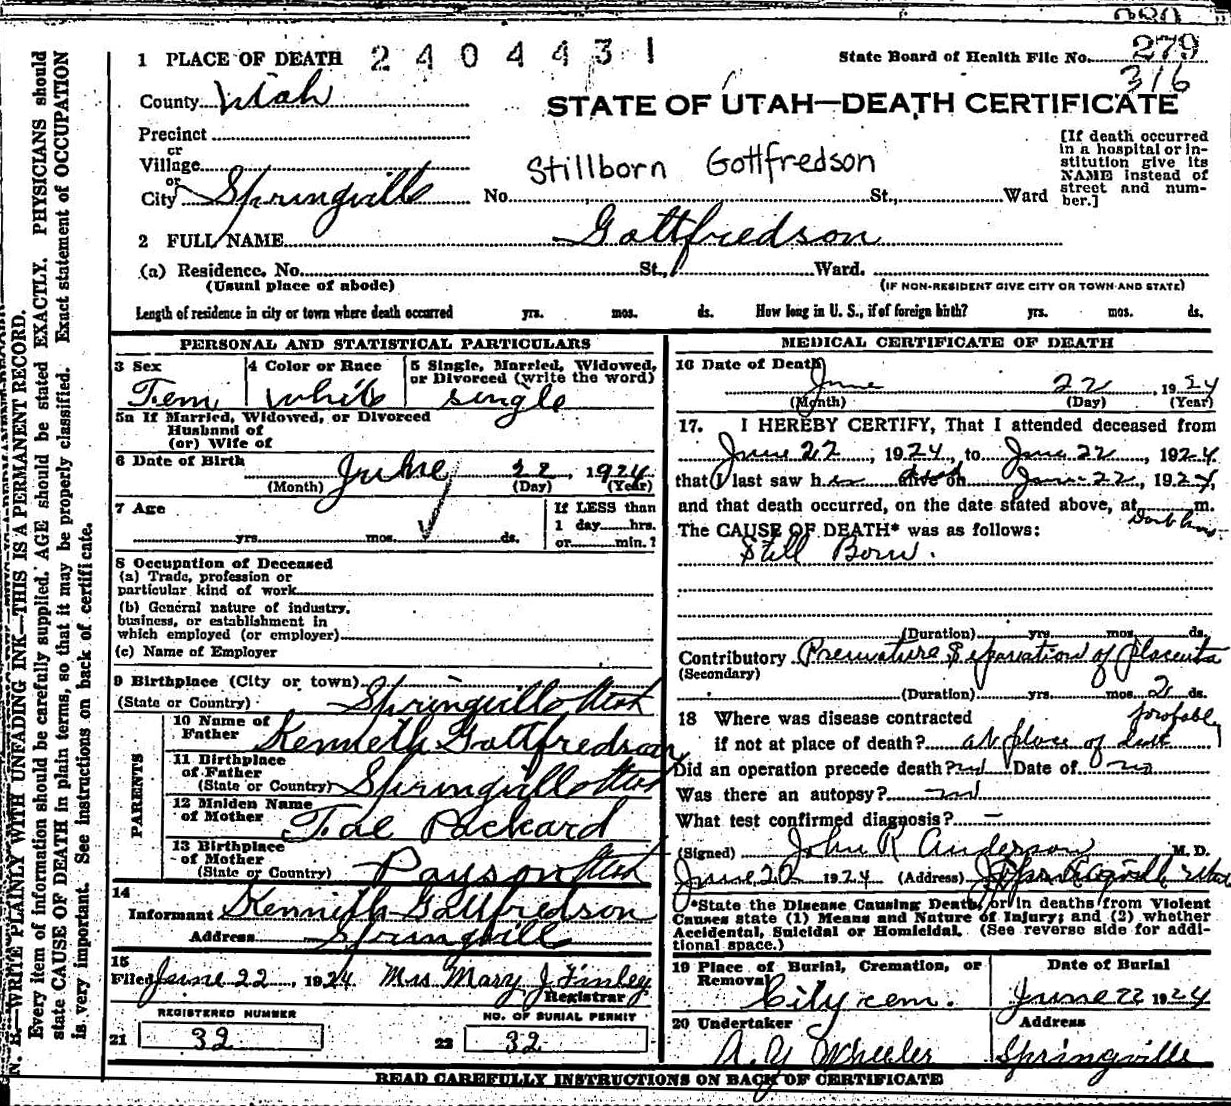 1 PLACE OF DEATH 2404431
State Board of Health File No. 279
316
County Utah
STATE OF UTAH—DEATH CERTIFICATE
Precinct
or
Village
or
City Springville
Stillborn Gottfredson
No. St., Ward
[If death occurred
in a hospital or in-
stitution give its
NAME instead of
street and num-
ber.]
2 FULL NAME Gottfredson
(a) Residence. No. St., Ward.
(Usual place of abode)
(IF NON-RESIDENT GIVE CITY OR TOWN AND STATE)
Length of residence in city or town where death occurred yrs. mos. ds. How long in U. S., if of foreign birth? yrs. mos. ds.
PERSONAL AND STATISTICAL PARTICULARS
3 Sex 4 Color or Race 5 Single, Married, Widowed,
or Divorced (write the word)
Fem White single
5a If Married, Widowed, or Divorced
Husband of
(or) Wife of
6 Date of Birth June 22, 1924
(Month) (Day) (Year)
7 Age
yrs. mos. ds.
If LESS than
1 day hrs.
or min.?
8 Occupation of Deceased
(a) Trade, profession or
particular kind of work
(b) General nature of industry,
business, or establishment in
which employed (or employer)
(c) Name of Employer
9 Birthplace (City or town) Springville Utah
(State or Country)
PARENTS
10 Name of
Father Kenneth Gottfredson
11 Birthplace
of Father
(State or Country) Springville Utah
12 Maiden Name
of Mother Fae Packard
13 Birthplace
of Mother
(State or Country) Payson Utah
14
Informant Kenneth Gottfredson
Address Springville
15
Filed June 22, 1924 Mrs Mary J Finley
Registrar
REGISTERED NUMBER NO. OF BURIAL PERMIT
21 32 22 32
MEDICAL CERTIFICATE OF DEATH
16 Date of Death
June 22 1924
(Month) (Day) (Year)
17. I HEREBY CERTIFY, That I attended deceased from
June 22, 1924, to June 22, 1924
that I last saw her on June 22, 1924,
and that death occurred, on the date stated above, at m.
The CAUSE OF DEATH* was as follows:
Still Born.
(Duration) yrs. mos. ds.
Contributory Premature Separation of placenta
(Secondary)
(Duration) yrs. mos. 2 ds.
18 Where was disease contracted probably
if not at place of death? at place of death
Did an operation precede death? no Date of no
Was there an autopsy? no
What test confirmed diagnosis? —
(Signed) John R Anderson M. D.
June 22 1924 (Address) Springville Utah
*State the Disease Causing Death, or in deaths from Violent
Causes state (1) Means and Nature of Injury; and (2) whether
Accidental, Suicidal or Homicidal. (See reverse side for addi-
tional space.)
19 Place of Burial, Cremation, or
Removal City cem.
Date of Burial
June 22 1924
20 Undertaker
A. Y. Wheeler
Address
Springville
READ CAREFULLY INSTRUCTIONS ON BACK OF CERTIFICATE
N. B.—WRITE PLAINLY WITH UNFADING INK—THIS IS A PERMANENT RECORD.
Every item of information should be carefully supplied. AGE should be stated EXACTLY. PHYSICIANS should
state CAUSE OF DEATH in plain terms, so that it may be properly classified. Exact statement of OCCUPATION
is very important. See instructions on back of certificate.